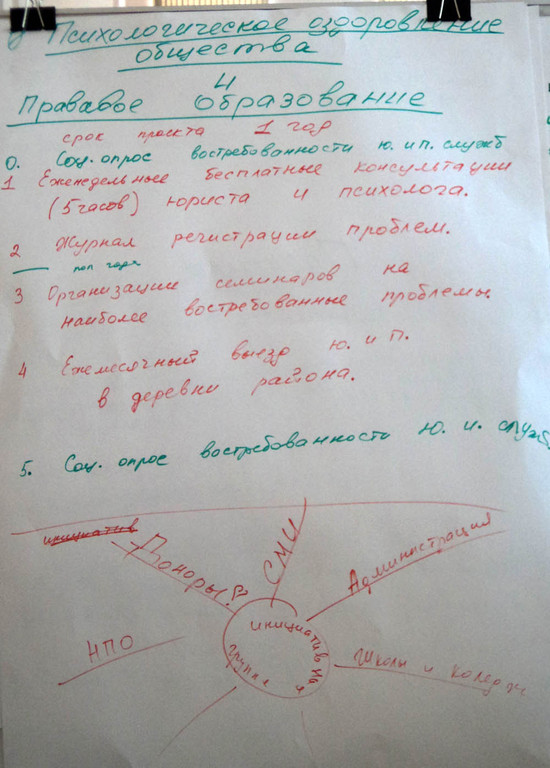 Психологическое оздоровление
общества
и
Прававое образование
срок проекта 1 год
0. Соц. опрос востребованности ю. и п. служб
1 Еженедельные бесплатные консультации
(5 часов) юриста и психолога.
2 Журнал регистрации проблем.
пол года
3 Организации семинаров на
наиболее востребованные проблемы.
4 Ежемесячный выезд ю. и п.
в деревни района.
5. Соц. опрос востребованности ю. и. служб.
инициатив
Доноры?
СМИ
Администрация
НПО
инициативная
группа
Школы и коледж